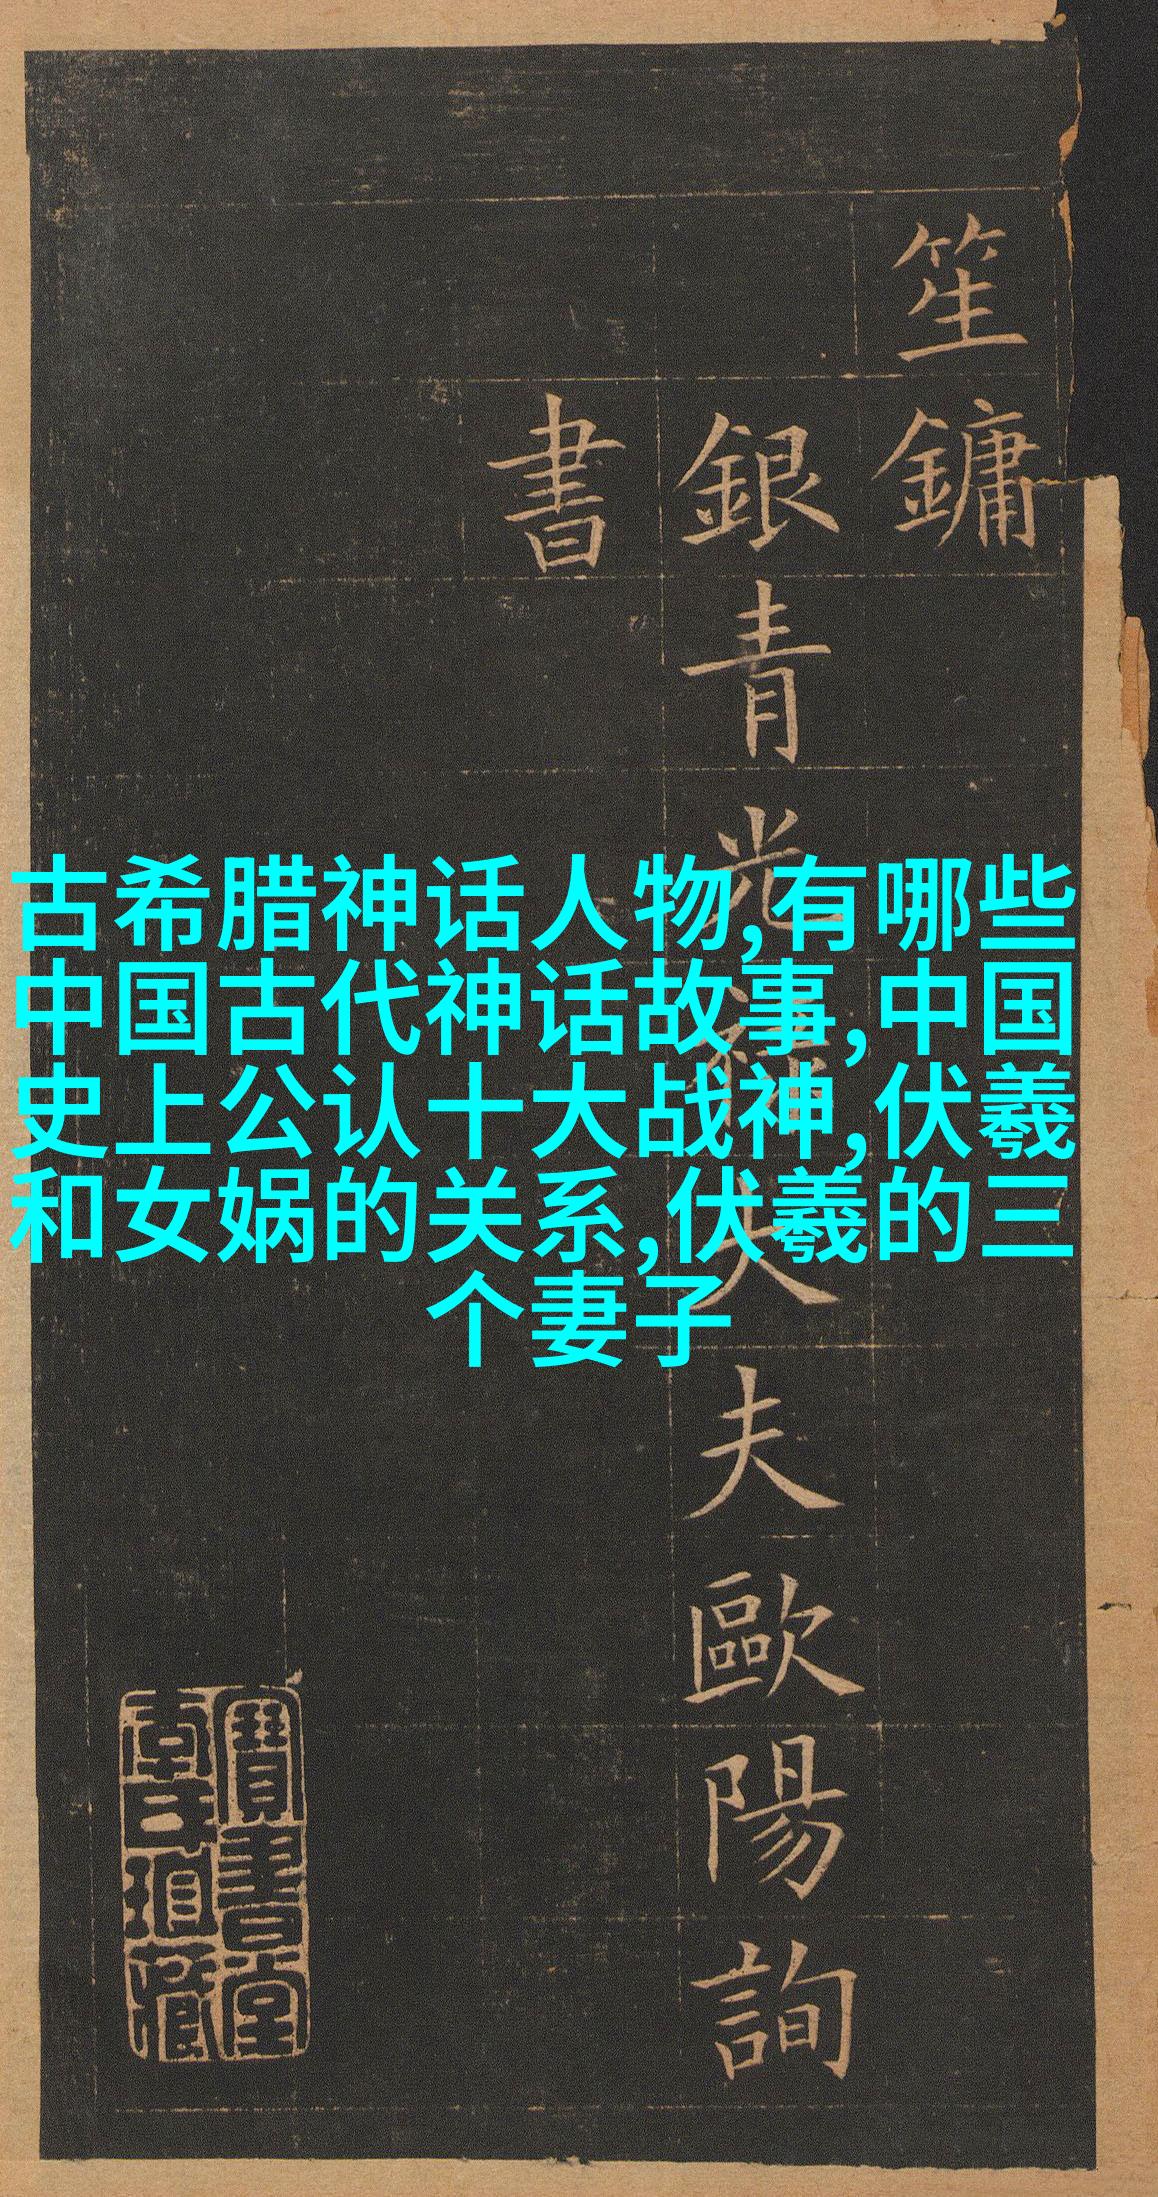 古希腊神话人物,有哪些
中国古代神话故事,中国
史上公认十大战神,伏羲
和女娲的关系,伏羲的三
个妻子
笙鏞
銀青光祿大夫歐陽詢
書
寶書堂